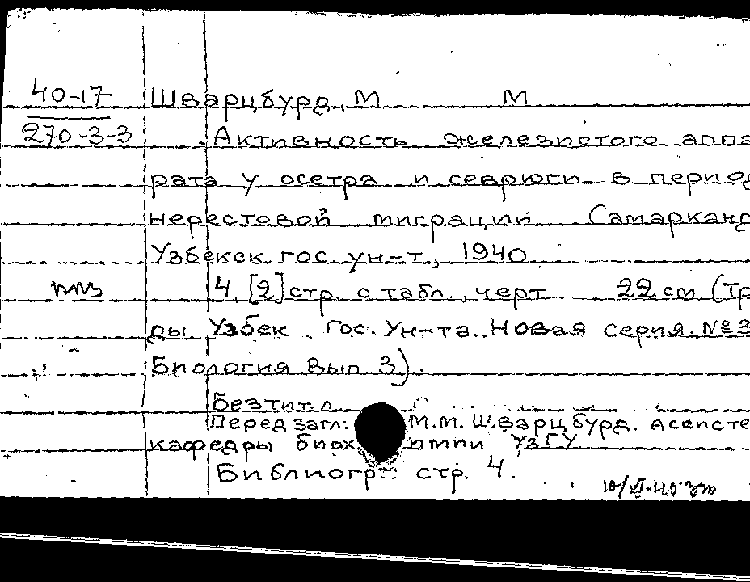 40-17 Шварцбурд, М. М
270-3-3 Активность железистого аппа
рата у осетра и севрюги в период
нерестовой миграции Самарканд
Узбекск гос. ун-т, 1940.
4, [2] стр. с табл., черт 22 см (Тр
ды Узбек. Гос. Ун-та. Новая серия. № 3
Биология Вып 3).
Без тит. л.
Перед загл: М.М. Шварцбурд. асписте
кафедры биох имии УзГУ
Библиогр: стр. 4.